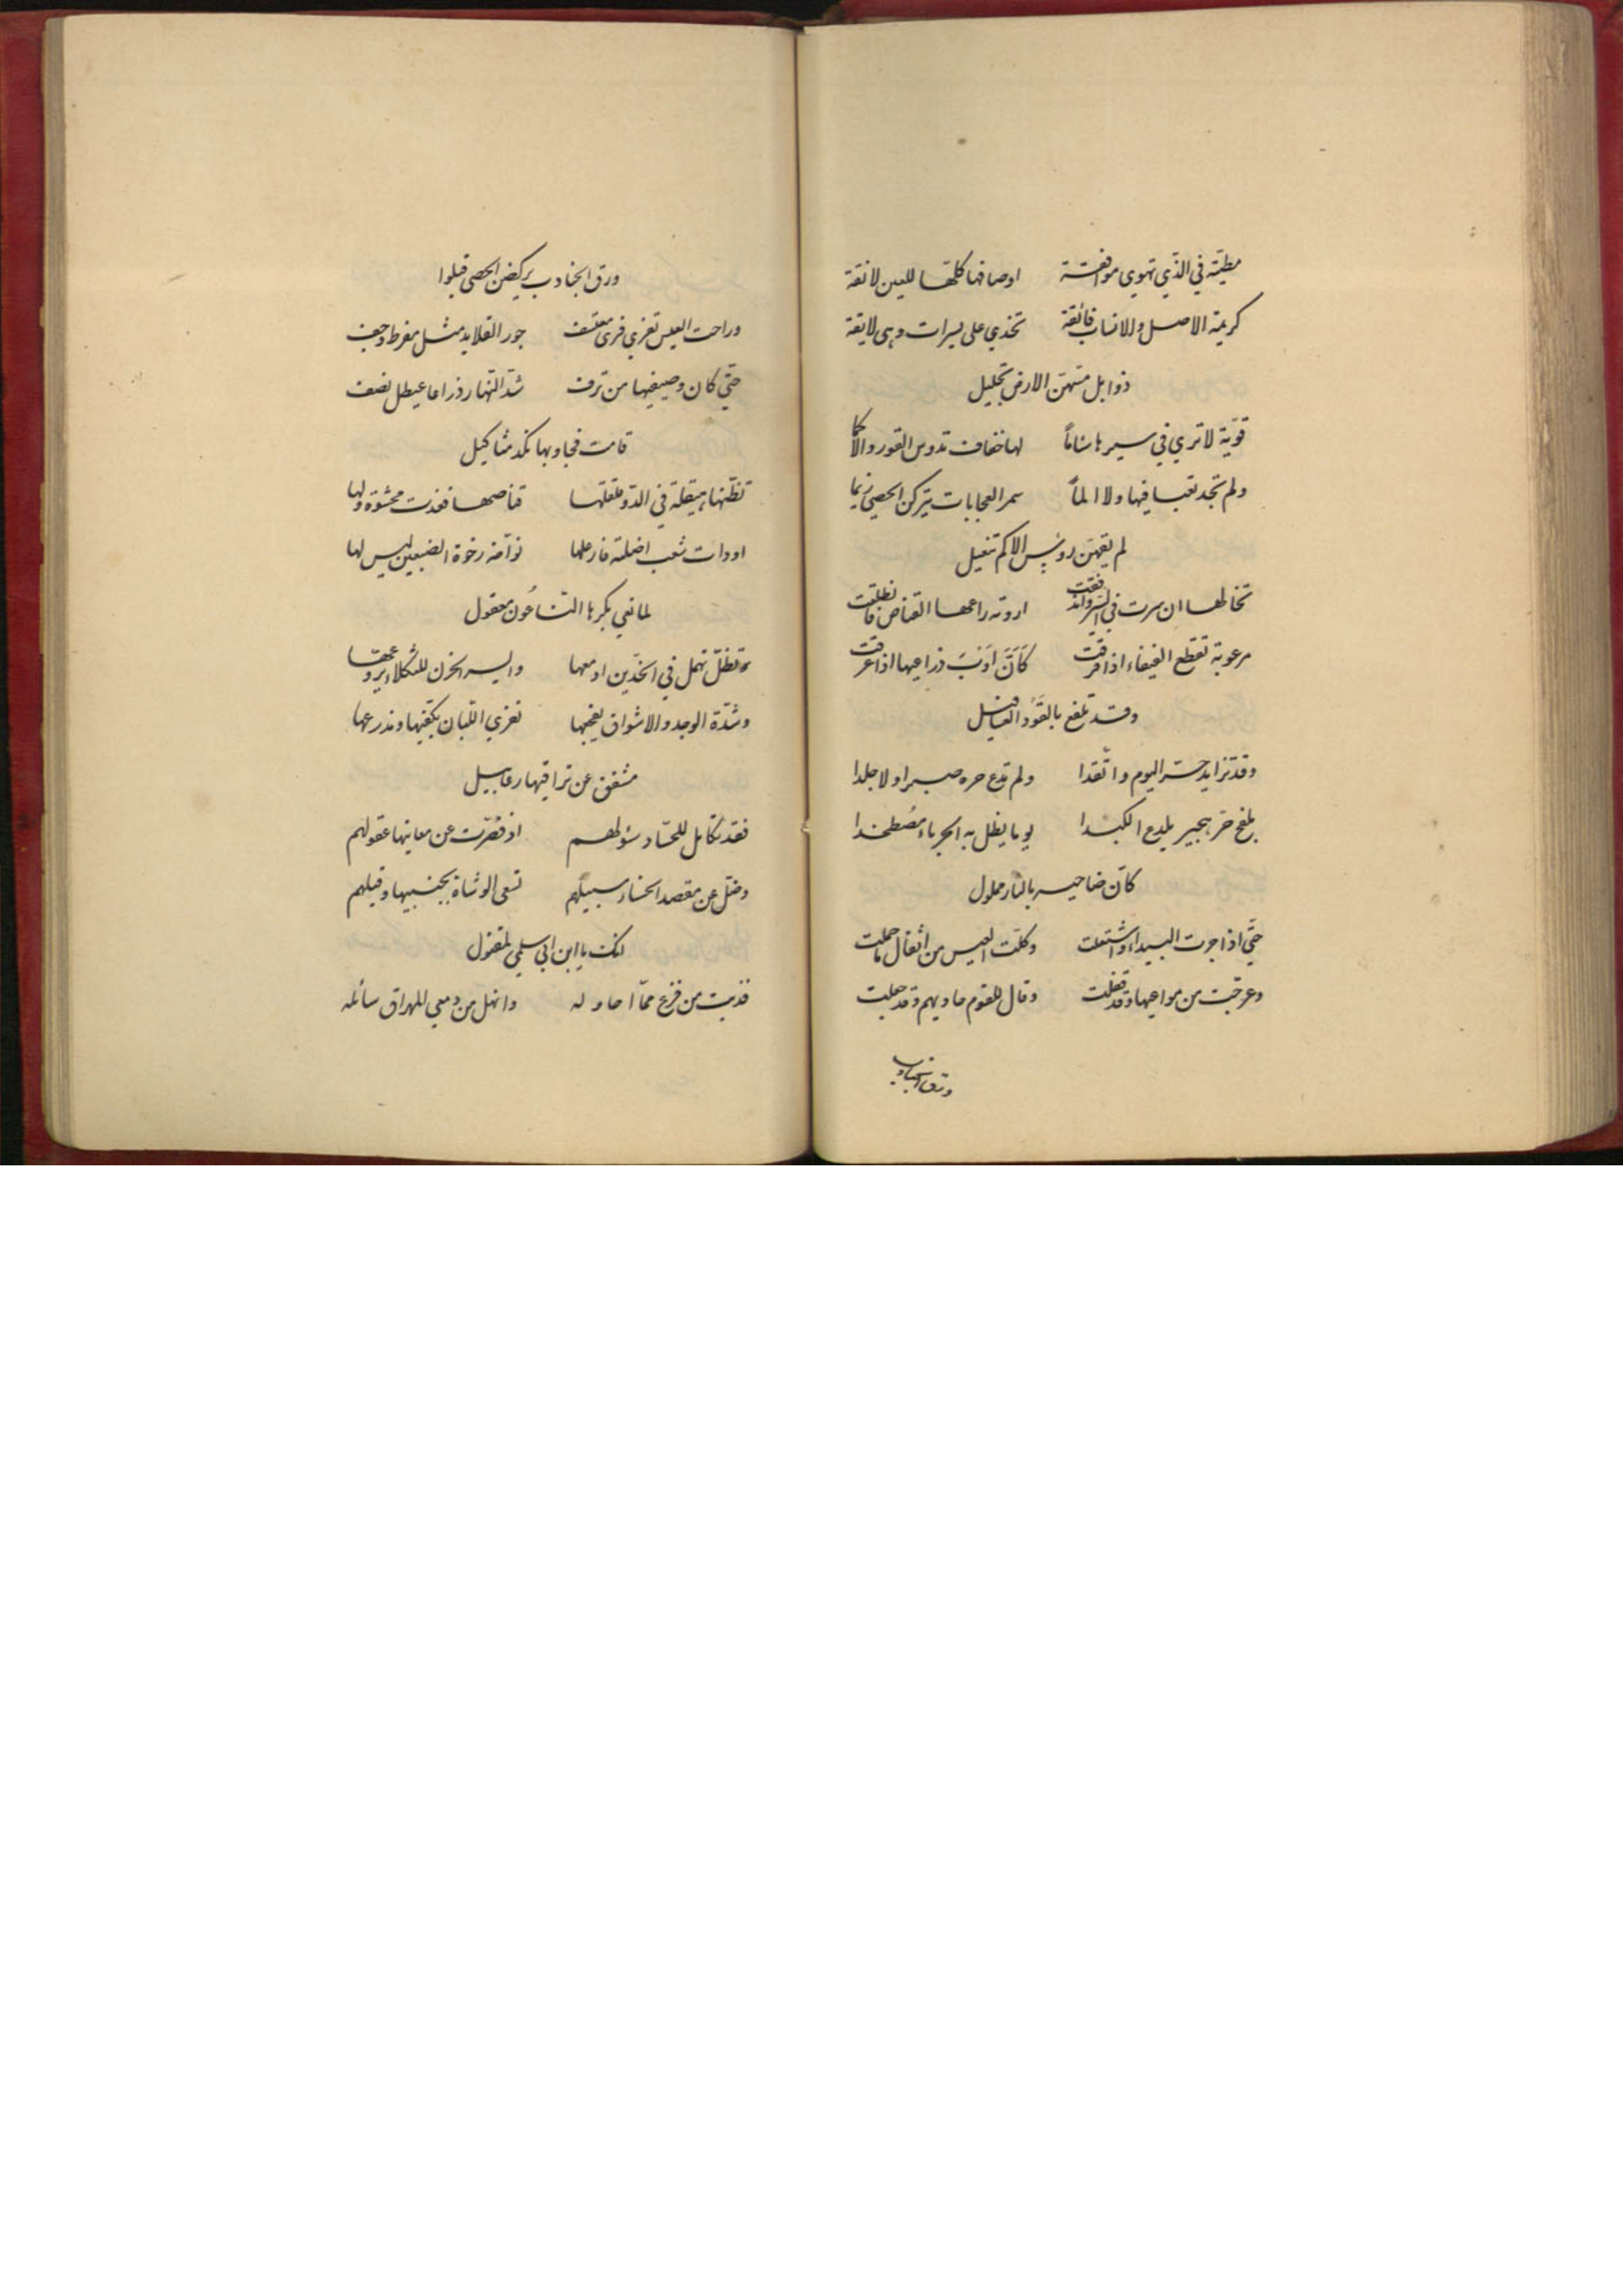 مطيّة في الذّي تهوي موافقة اوصافها كلّها للعين لانقة
كريمة الاصل والانساب فائقة تخدي على يسرات وهى لايقة
ذوابل مسّهنّ الارض تحليل
قويّة لا تري في سيرها سئاماً لها خفاف تدوس القور والاكما
ولم تجد تعبا فيها ولا الماً سمر العجايات يتركن الحصي زيما
لم يقهنّ روئس الاكم تنعيل
تخالها ان سرت في السّير واندفقت اروته راعها القناص فانطلقت
مرعوبة تقطع الفيفاء اذا فرقت كَاَنَّ اَوْبَ ذراعيها اذا عرقت
وقد تلفع بالقَوْرِ العساقيل
وقد تزايد حرّ اليوم واتّقدا ولم تدع حره صبرا ولا جلدا
بلفح حرّ هجير يلدع الكبدا يوما يظل به الحرباء مُصطخدا
كانّ ضاحيه بالنار مملول
حتّي اذا جرت البيداء واشتعلت وكلّت العيس من اثقال ما حملت
وعرجّت من مواعيها وقد قفلت وقال للقوم حاديهم وقد جعلت
ورق الجنادب
ورق الجنادب يركضن الحصى قيلوا
وراحت العيس تفري فرى معتسف جور الفلا يد مثل مفرط وجف
حتّي كان وصيفيها من ترف شدّ النّهار ذراعا عيطل نصف
قامت فجاوبها نكد مثاكيل
تظنّها هيقلة في الدّو عقلها قناصها فغذت محشوّة ولها
او ذات شعب اضلته فارعلها نوّاحة رخوة الضبعين ليس لها
لما نعي بكرها النّاعُون معقول
وتظلّ تهمل في الخدّين ادمعها واليسر الحزن للثكلاء يروعها
وشدّة الوجد والاشواق يفجعها تفري اللّبان بكفّيها ومدرعها
مشقق عن تراقيها رعابيل
فقد تكامل للحسّاد سؤلهم اذ قصّرت عن معانيها عقولهم
وضلّ عن مقصد الحسناء سبيلهم تسعى الوشاة بجنبيها وقيلهم
انك يا ابن ابي سلمي لمقتول
فذبت من فزع ممّا احاوله وانهل من دمعي المهراق سائله